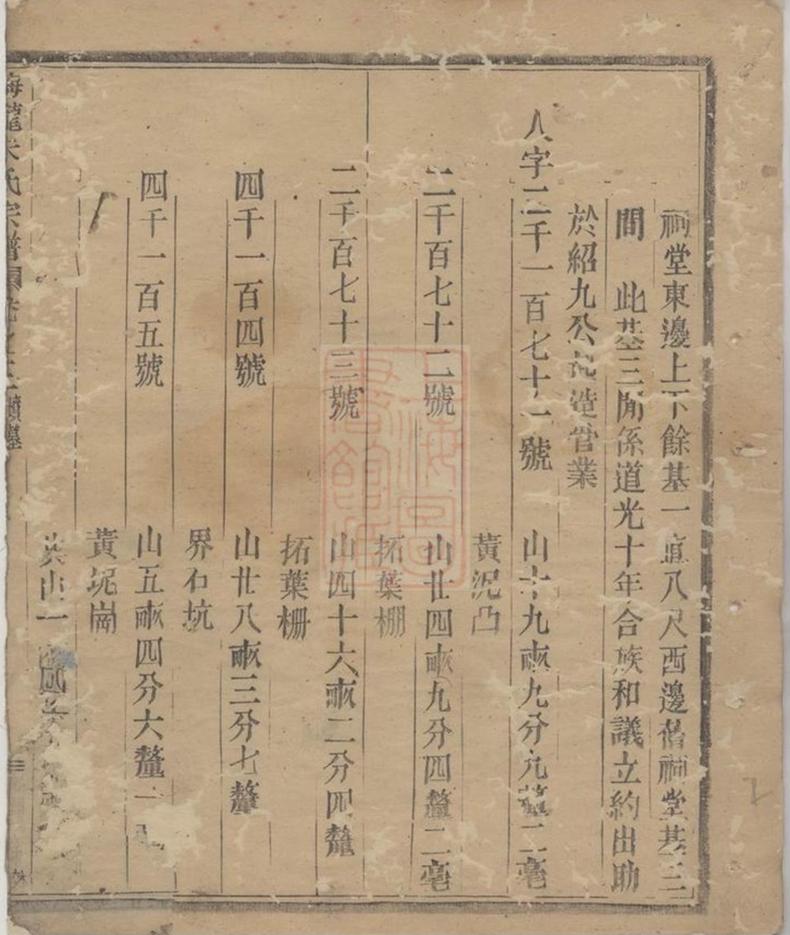 祠堂東邊上下餘基一直八尺西邊舊祠堂基三
間　此基三間係道光十年合族和議立約出助
於紹九公起造管業
人字二千一百七十一號　山十九畝九分九釐二毫
黃泥凸
二千百七十二號　山廿四畝九分四釐二毫
拓葉棚
二千百七十三號　山四十六畝二分四釐
拓葉栅
四千一百四號　山廿八畝三分七釐
界石坑
四千一百五號　山五畝四分六釐
黃坭崗
山一
氏宗譜